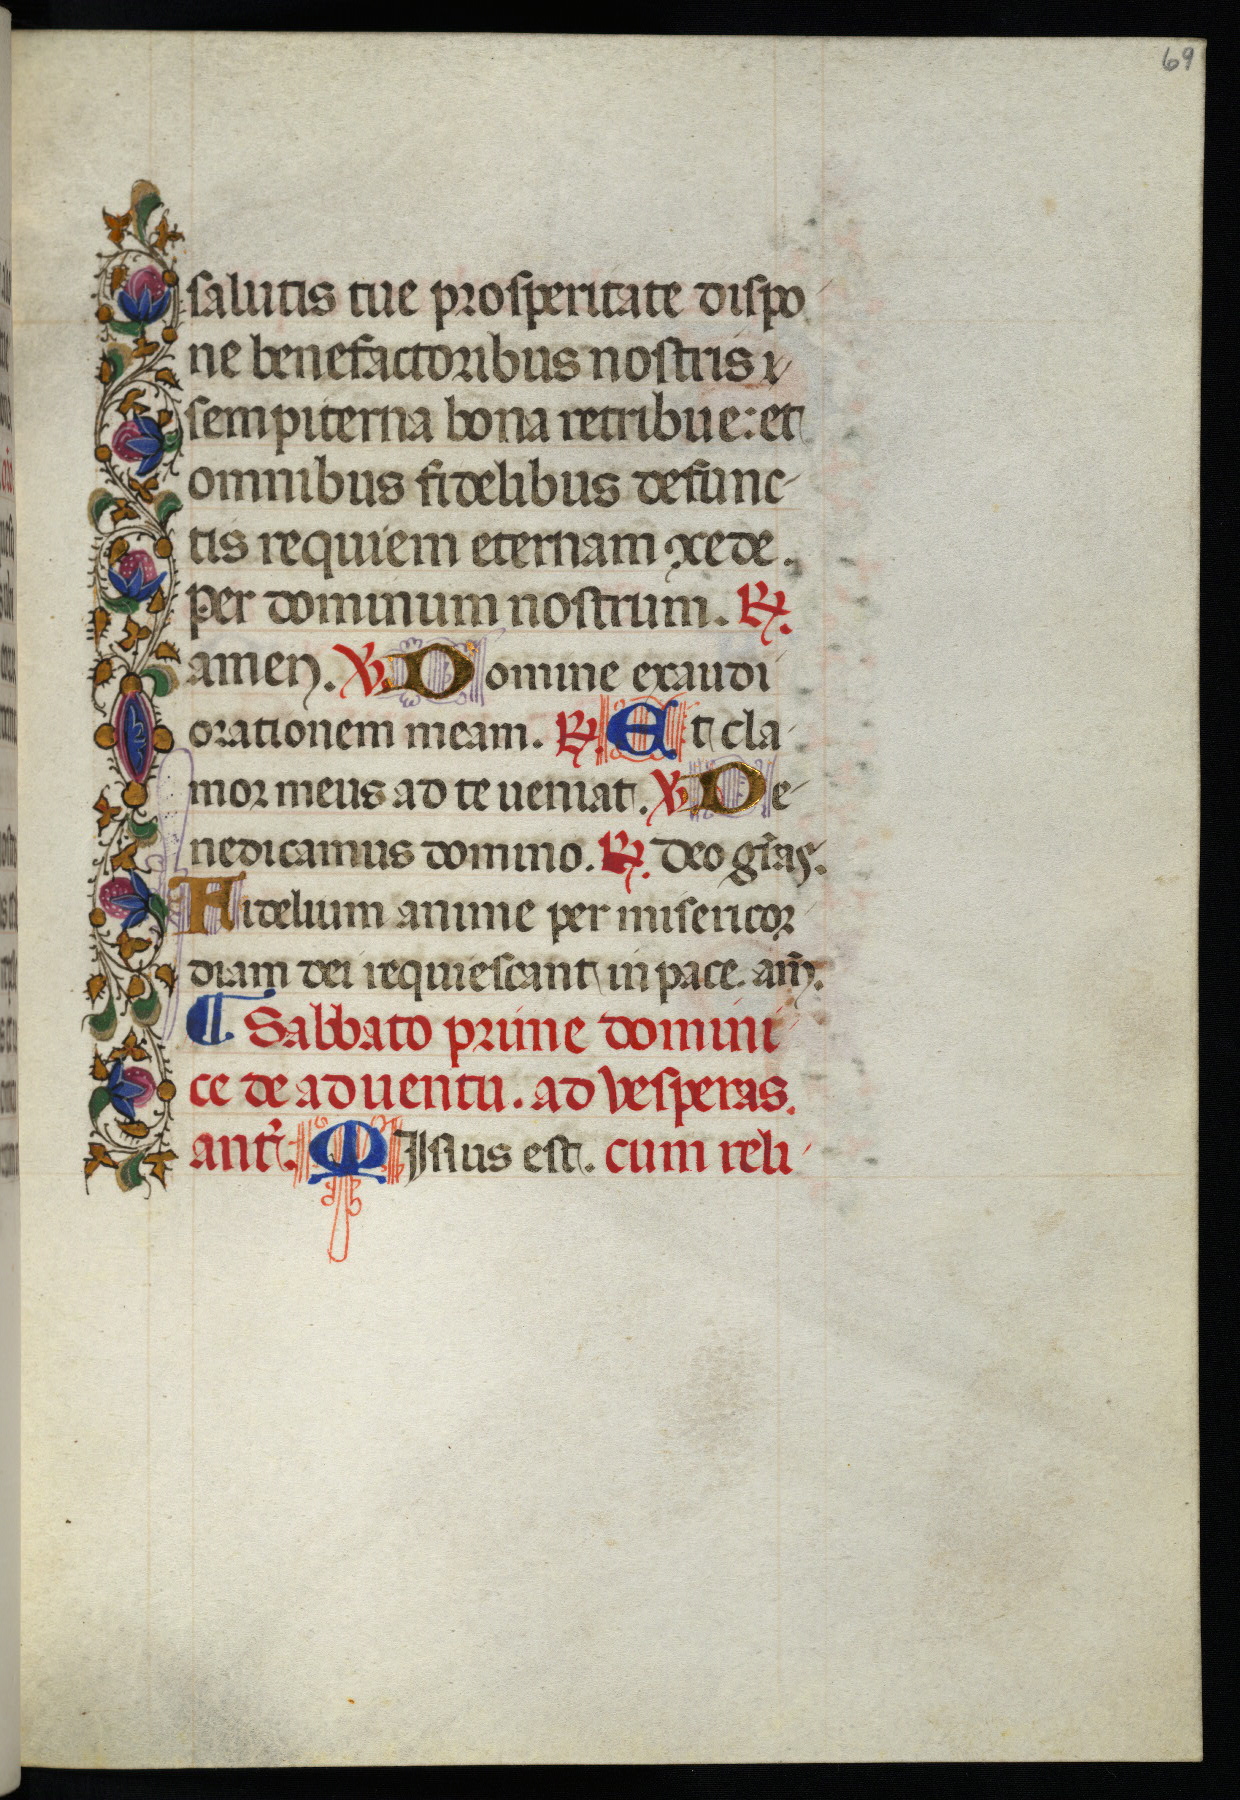 69
salutis tue prosperitate dispo
ne benefactoribus nostris ⁊
sempiterna bona retribue: et
omnibus fidelibus defunc
tis requiem eternam ꝯcede.
per dominum nostrum. ℟.
amen. ℣. Domine exaudi
orationem meam. ℟. Et cla
mor meus ad te ueniat. ℣. Be
nedicamus domino. ℟. Deo gr̃as.
Fidelium anime per misericor
diam dei requiescant in pace. am̃.
¶ Sabbato prime domini
ce de aduentu. ad vesperas.
ant̃. Missus est. cum reli